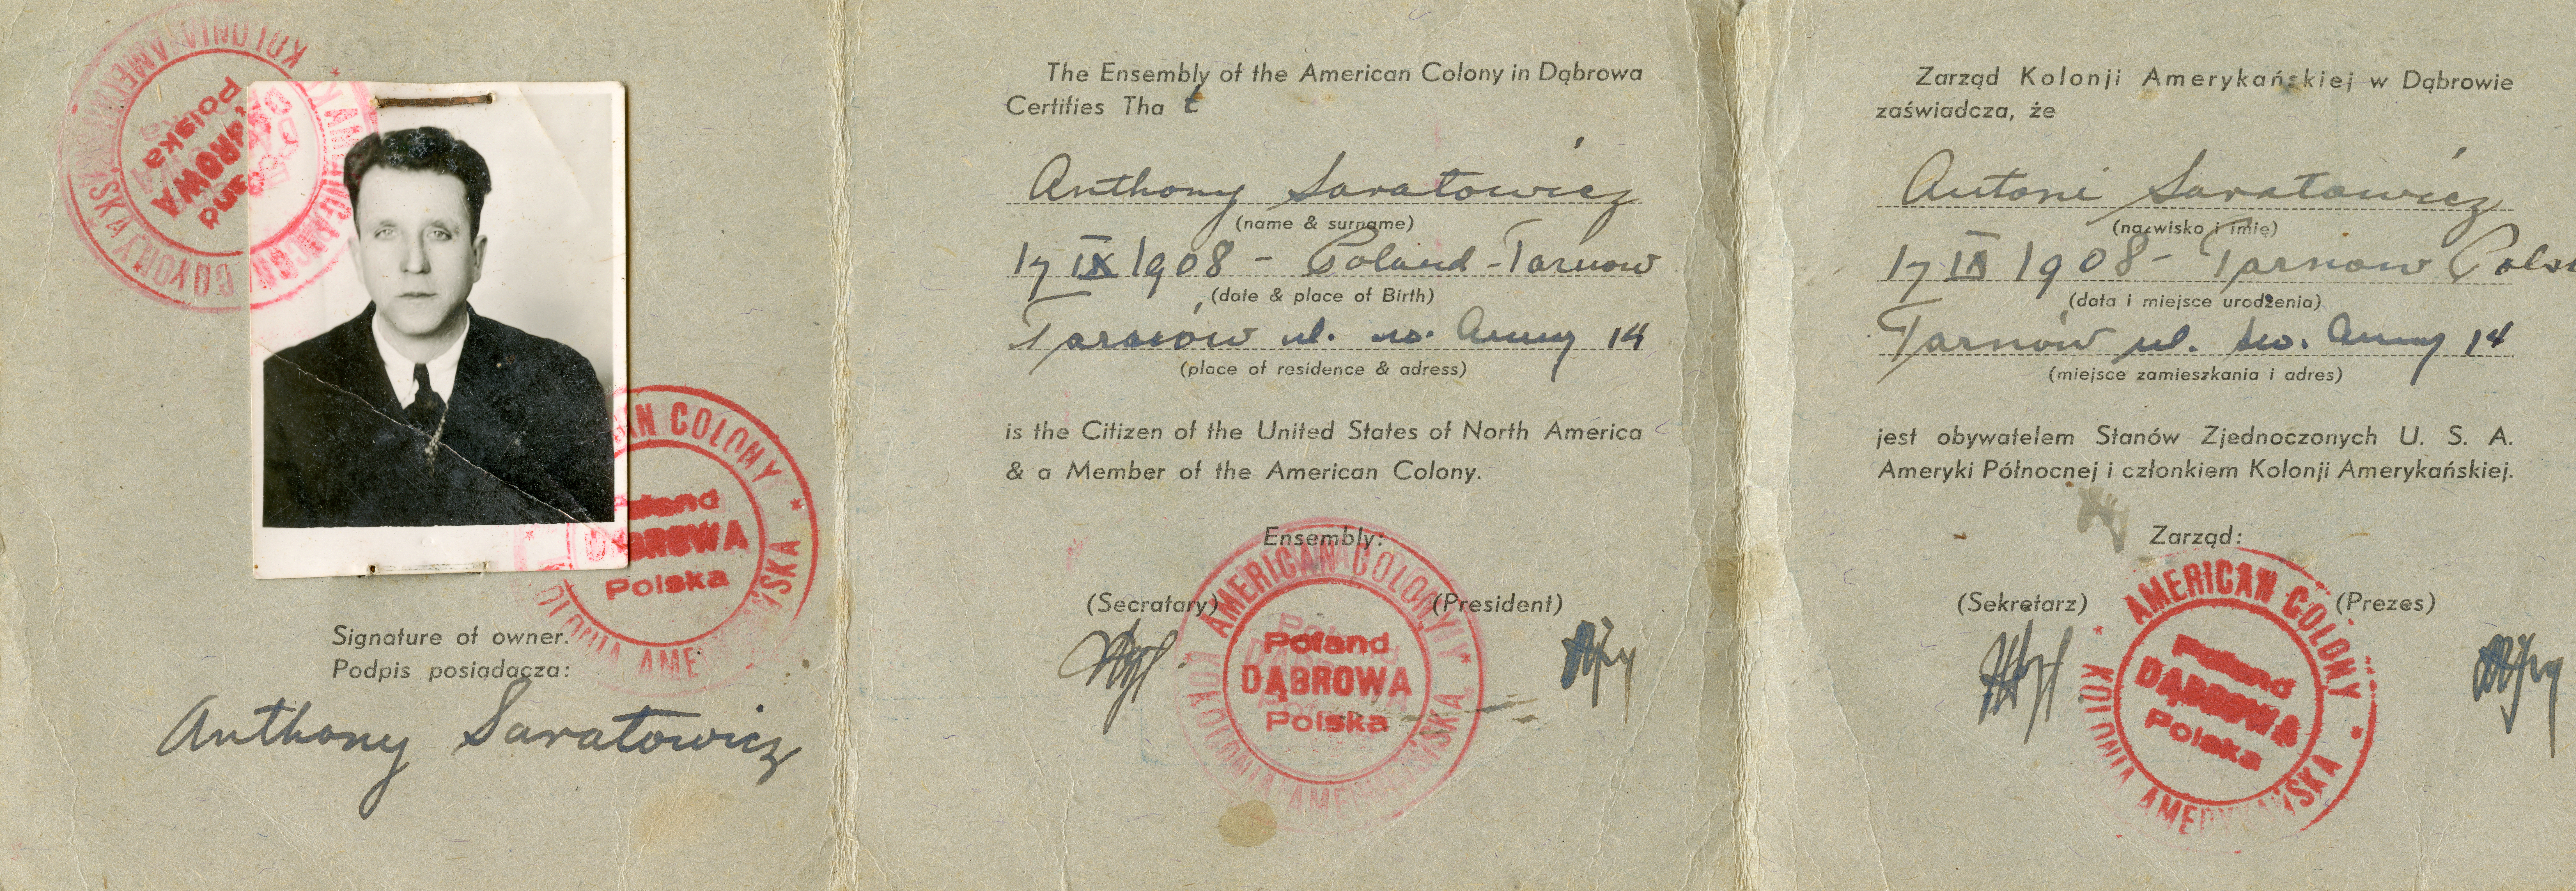 KOLONIA AMERYKAŃSKA
Poland
DĄBROWA
Polska
AMERICAN COLONY * KOLONIA AMERYKAŃSKA *
Poland
DĄBROWA
Polska
Signature of owner.
Podpis posiadacza:
Anthony Saratowicz
The Ensembly of the American Colony in Dąbrowa
Certifies Tha t
Anthony Saratowicz
(name & surname)
17 IX 1908 - Poland - Tarnow
(date & place of Birth)
Tarnów ul. św. Anny 14
(place of residence & adress)
is the Citizen of the United States of North America
& a Member of the American Colony.
Ensembly:
(Secratary) (President)
AMERICAN COLONY * KOLONIA AMERYKAŃSKA
Poland
DĄBROWA
Polska
Zarząd Kolonji Amerykańskiej w Dąbrowie
zaświadcza, że
Antoni Saratowicz
(nazwisko i imię)
17 IX 1908 - Tarnow Polsk
(data i miejsce urodzenia)
Tarnów ul. św. Anny 14
(miejsce zamieszkania i adres)
jest obywatelem Stanów Zjednoczonych U. S. A.
Ameryki Północnej i członkiem Kolonji Amerykańskiej.
Zarząd:
(Sekretarz) (Prezes)
* AMERICAN COLONY * KOLONIA AMERYKAŃSKA
Poland
DĄBROWA
Polska